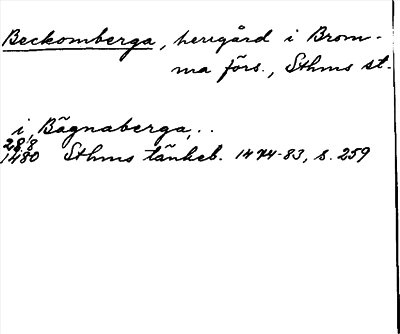 Beckomberga, herrgård i Brom-
ma förs., Sthms st.
i Bägnaberga, . .
28/8
1480 Sthms tänkeb. 1474-83, s. 259